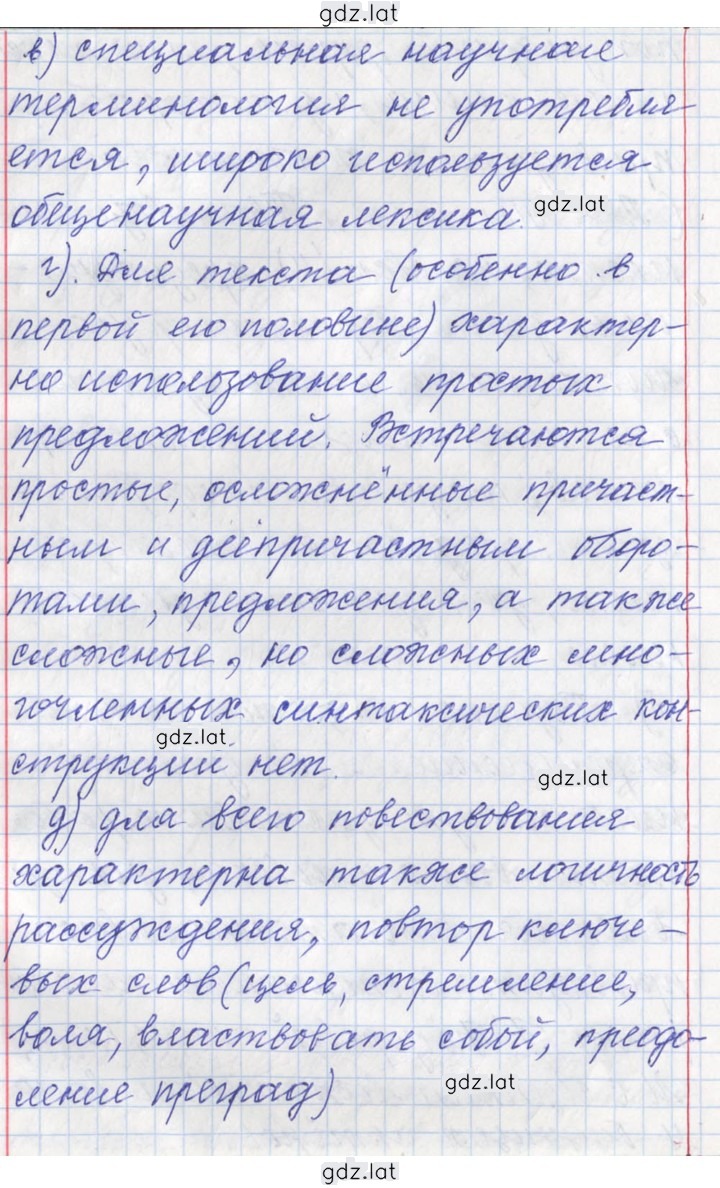 gdz.lat
в) специальная научная
терминология не употребля
ется, широко используется
общенаучная лексика.
gdz.lat
г). Для текста (особенно в
первой его половине) характер-
но использование простых
предложений. Встречаются
простые, осложнённые причаст-
ным и деепричастным оборо-
тами, предложения, а также
сложные, но сложных мно-
гочленных синтаксических кон-
gdz.lat
струкций нет.
gdz.lat
д) для всего повествования
характерна также логичность
рассуждения, повтор ключе-
вых слов (цель, стремление,
воля, властвовать собой, преодо-
ление преград)
gdz.lat
gdz.lat